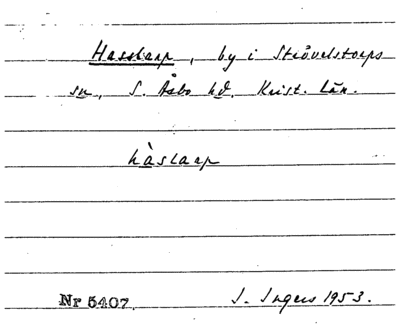 Hasslarp, by i Strövelstorps
sn, S. Åsbo hd. Krist. län.
hàslarp
Nr 5407. I. Ingers 1953.